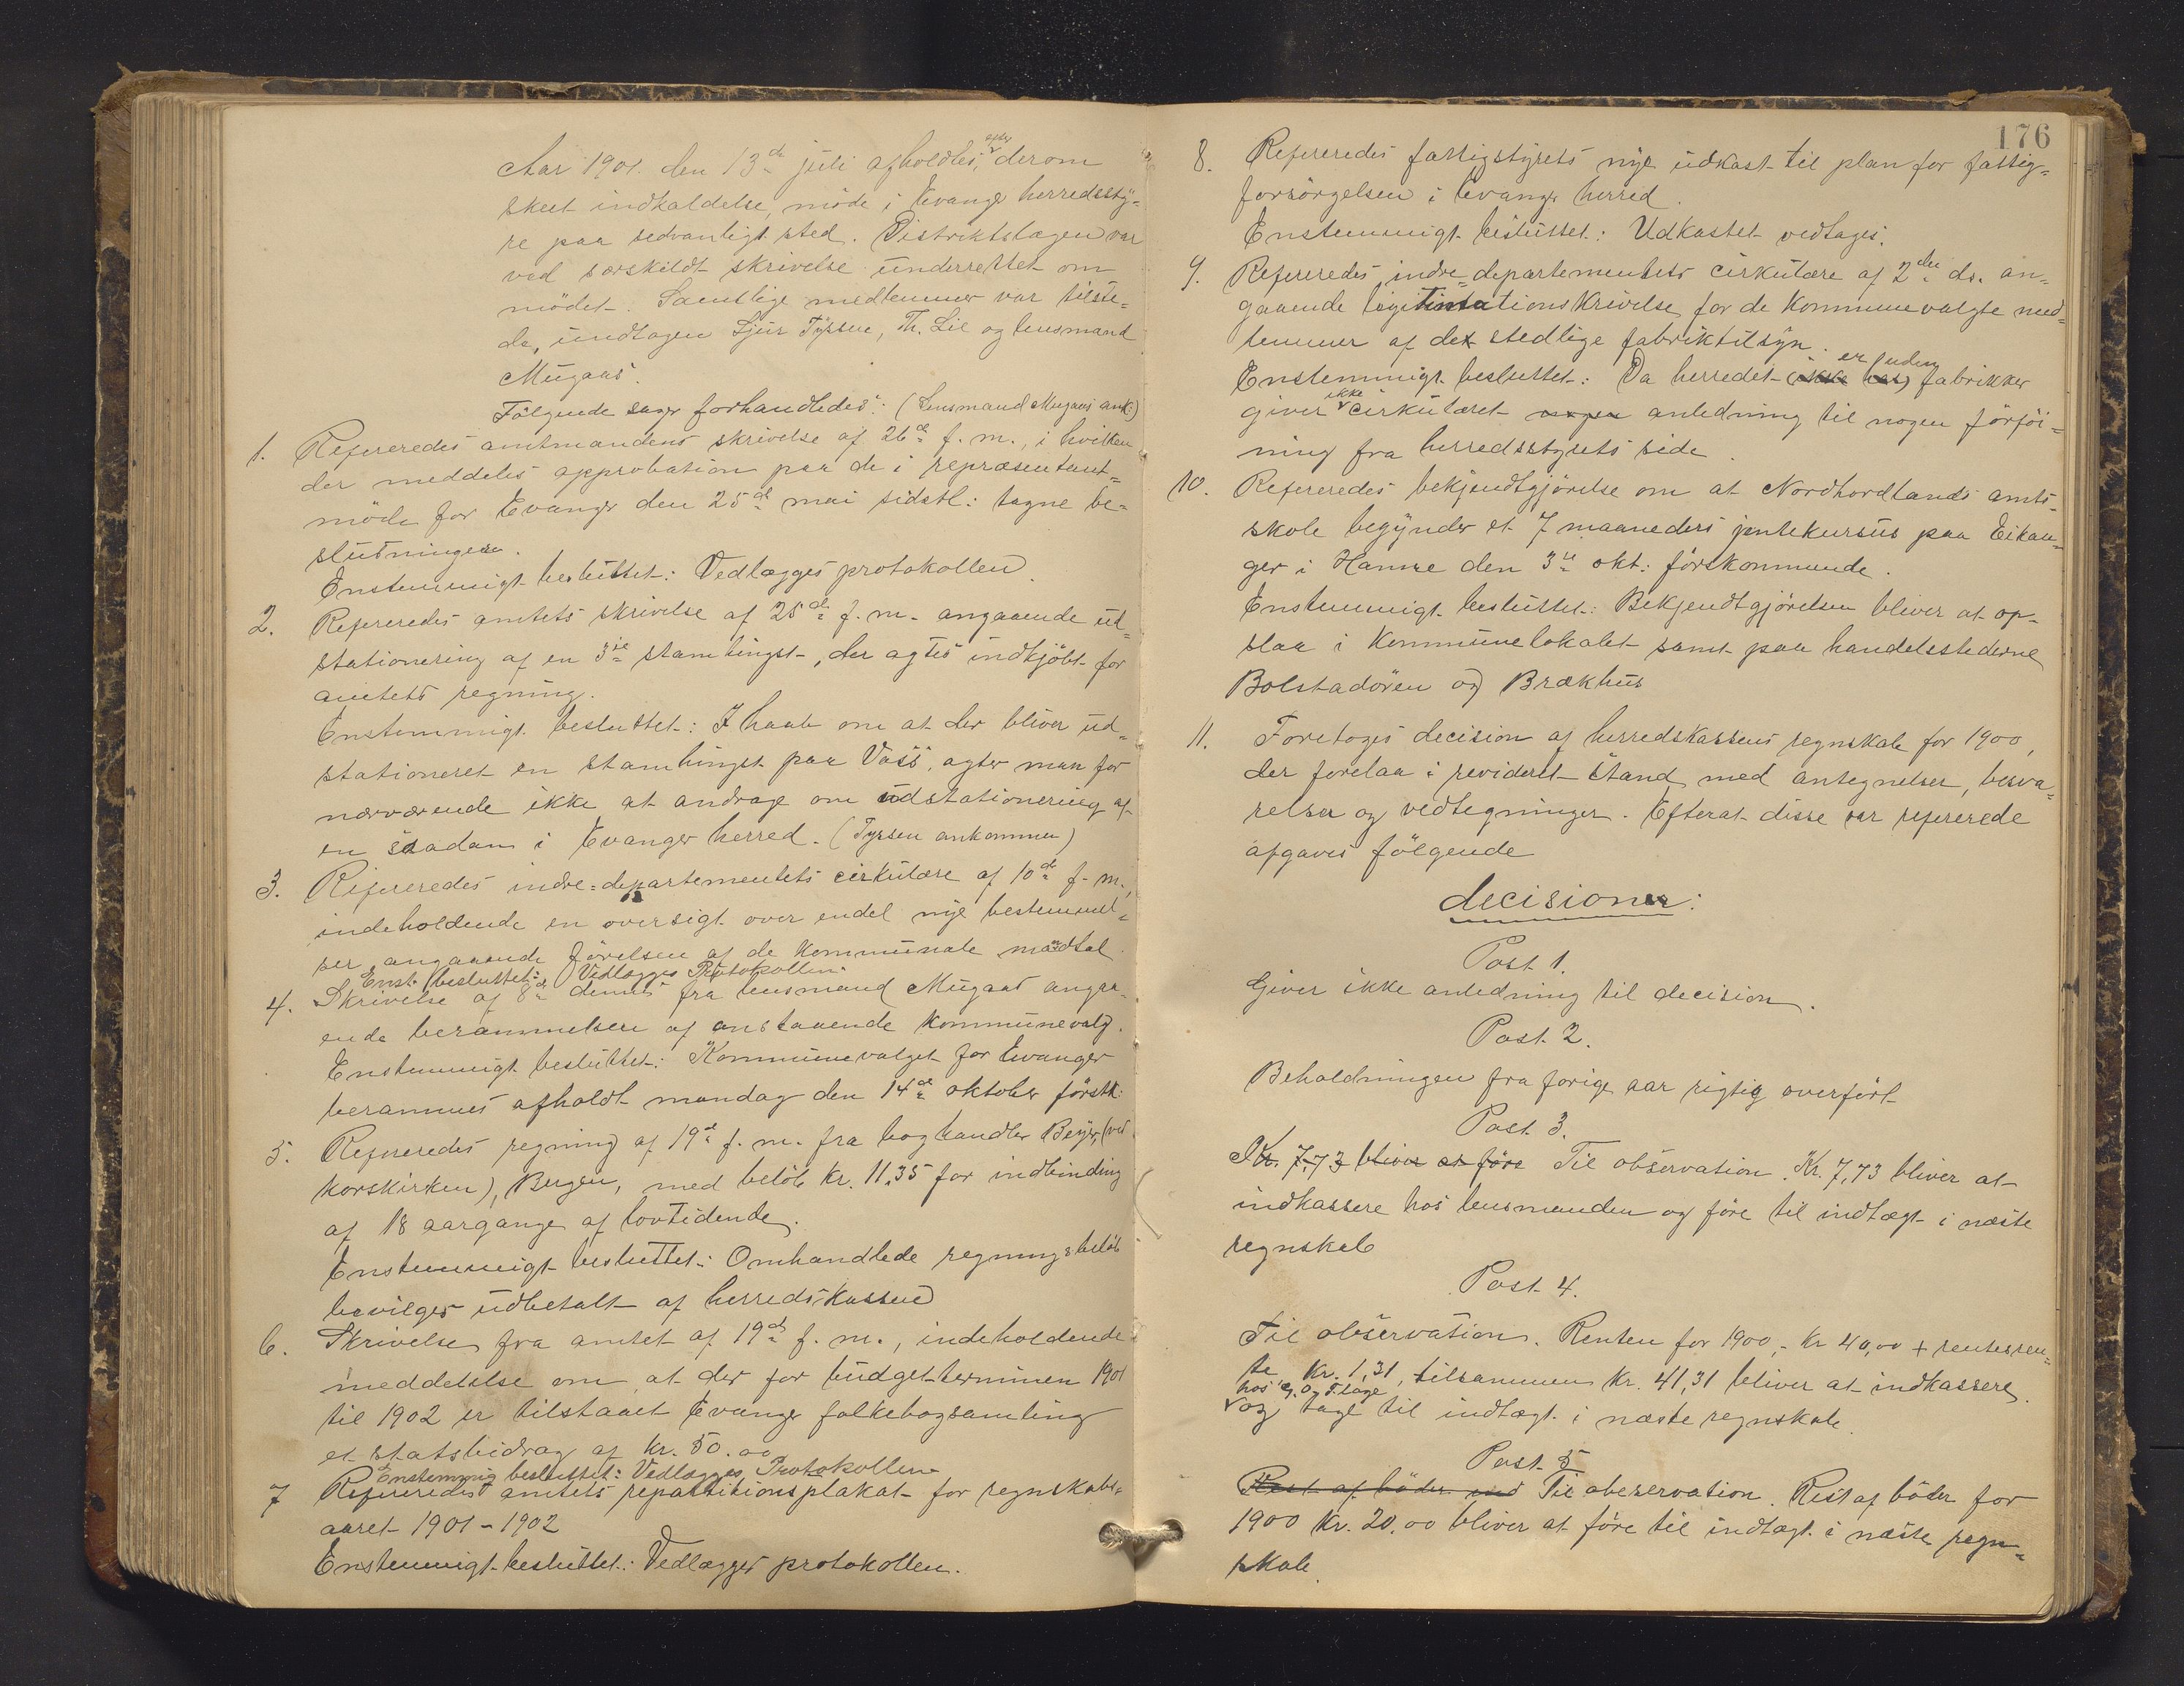 Aar 1901. den 13de juli afholdtes, efter derom
skeet indkaldelse, møde i Evanger herredssty-
re paa sedvanligt sted. Distriktslægen var
ved særskildt skrivelse underrettet om
mødet. Samtlige medlemmer var tilste-
de, undtagen Sjur Tyssen, Th. Lie og lensmand
Mugaas.
Følgende sager forhandledes: (Lensmand Mugaas ank:)
1. Refereredes amtmandens skrivelse af 26de f. m., i hvilken
der meddeles approbation paa de i repræsentant-
møde for Evanger den 25de mai sidstl: tagne be-
slutninger.
Enstemmigt besluttet: Vedlægges protokollen.
2. Refereredes amtets skrivelse af 25de f. m. angaaende ud-
stationering af en 3die stamhingst, der agtes indkjøbt for
amtets regning.
Enstemmigt besluttet: I haab om at der bliver ud-
stationeret en stamhingst paa Voss, agter man for
nærværende ikke at andrage om udstationering af
en saadan i Evanger herred. (Tyssen ankommen)
3. Refereredes indre=departementets cirkulære af 10de f. m.,
indeholdende en oversigt over endel nye bestemmel-
ser angaaende førelsen af de kommunale mandtal.
Enst. besluttet: Vedlægges Protokollen.
4. Skrivelse af 8de dennes fra lensmand Mugaas angaa-
ende berammelsen af anstaaende kommunevalg.
Enstemmigt besluttet: Kommunevalget for Evanger
berammes afholdt mandag den 14de oktober førstk:
5. Refereredes regning af 19de f. m. fra boghandler Beyer, (ved
korskirken), Bergen, med beløb kr. 11,35 for indbinding
af 18 aargange af lovtidende.
Enstemmigt besluttet: Omhandlede regningsbeløb
bevilges udbetalt af herredskassen
6. Skrivelse fra amtet af 19de f. m., indeholdende
meddelelse om, at der for budget-terminen 1901
til 1902 er tilstaaet Evanger folkebogsamling
et statsbidrag af kr. 50.00
Enstemmig besluttet: Vedlægges Protokollen
7 Refereredes amtets repartitionsplakat for regnskabs-
aaret 1901-1902
Enstemmigt besluttet: Vedlægges protokollen.
176
8. Refereredes fattigstyrets nye udkast til plan for fattig-
forsørgelsen i Evanger herred.
Enstemmigt besluttet: Udkastet vedtages.
9. Refereredes indre=departementets cirkulære af 2den ds. an-
gaaende legitimationskrivelse for de kommunevalgte med-
lemmer af det stedlige fabriktilsyn.
Enstemmigt besluttet: Da herredet (ikke har) er uden fabrikker
giver ikke cirkulæret ingen anledning til nogen førføi-
ning fra herredsstyrets side.
10. Refereredes bekjendtgjørelse om at Nordhordlands amts-
skole begynder et 7 maaneders jentekursus paa Eikan-
ger i Hamre den 3die okt: førskommende.
Enstemmigt besluttet: Bekjendtgjørelsen bliver at op-
slaa i kommunelokalet samt paa handelsstederne
Bolstadøren og Brækhus
11. Foretoges decision af herredskassens regnskab for 1900,
der forelaa i revideret stand med antegnelser, besva-
relser og vedtegninger. Efterat disse var refererede
afgaves følgende
decisioner:
Post 1.
Giver ikke anledning til decision.
Post 2.
Beholdningen fra forige aar rigtig overført
Post 3.
Kr. 7,73 bliver at føre Til observation. Kr. 7,73 bliver at
indkassere hos lensmanden og føre til indtægt i næste
regnskab
Post 4.
Til observation. Renten for 1900, - kr 40,00 + rentesren-
te kr. 1,31, tilsammen kr. 41,31 bliver at indkassere
hos
og tage til indtægt i næste regnskab.
Post 5
Rest af bøder ind Til obeservation. Rest af bøder for
1900 kr. 20.00 bliver at føre til indtægt i næste regn-
skab.